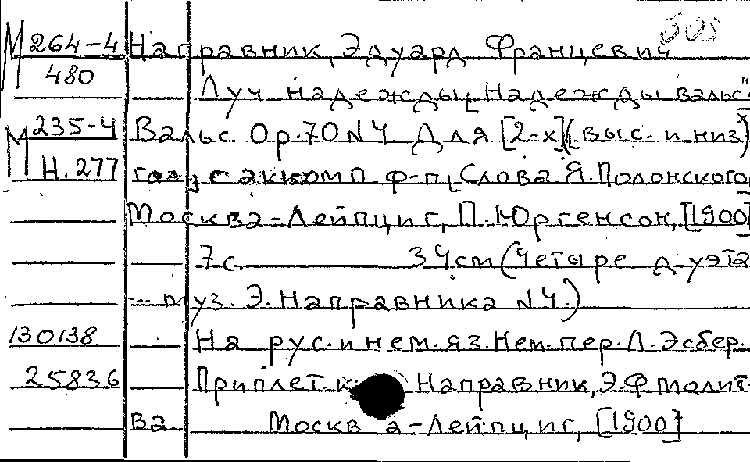 505
М 264-4 Направник, Эдуард Францевич
480 Луч надежды [Надежды вальс"
М 235-4 Вальс. Op. 70 N 4 Для [2-х] (выс. и низ)
Н. 277 с аккомп. ф-п, Слова Я. Полонского
Москва-Лейпциг, П. Юргенсон, [1900]
7 с. 34 см (Четыре дуэта
муз. Э. Направника N 4.)
130138 На рус. и нем. яз. Нем. пер. Л. Эсбер.
25836 Приплет. к Направник, Э.Ф. Молит-
ва Москва-Лейпциг, [1900]